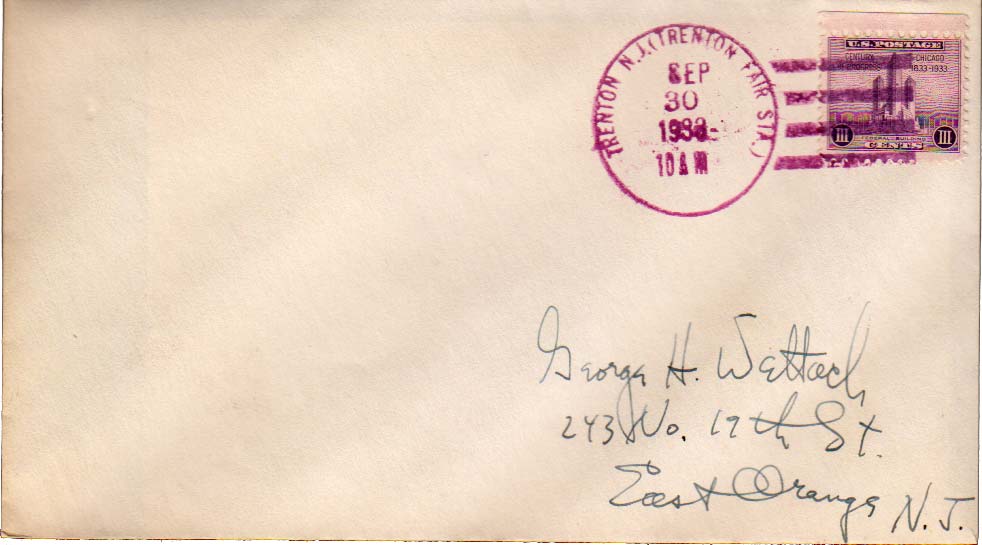 TRENTON N.J. (TRENTON FAIR STA.)
SEP
30
1933
10 AM
U.S. POSTAGE
CENTURY OF PROGRESS
CHICAGO
1833-1933
FEDERAL BUILDING
III CENTS III
George H. Wettach
243 No. 19th St.
East Orange N. J.